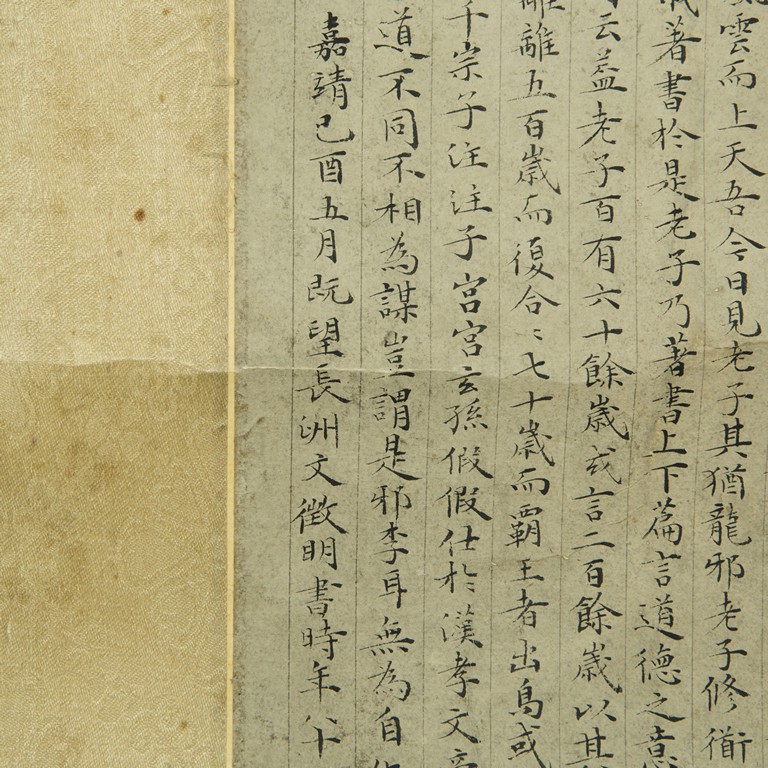 雲而上天吾今日見老子其猶龍邪老子修衜
著書於是老子乃著書上下篇言道德之意
云蓋老子百有六十餘歲或言二百餘歲以其
離離五百歲而復合〻七十歲而覇王者出焉或
干宗子注注子宮宮玄孫假假仕於漢孝文
道不同不相為謀豈謂是邪李耳無為自
嘉靖己酉五月既望長洲文徵明書時年八十